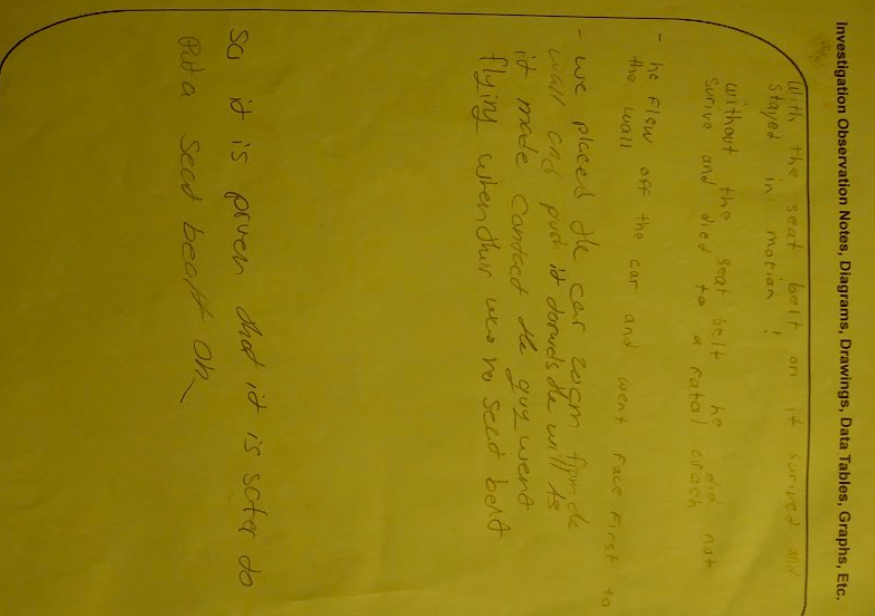 Investigation Observation Notes, Diagrams, Drawings, Data Tables, Graphs, Etc.
With the seat belt on it surived and
stayed in motion!
without the seat belt he did not
surive and died to a fatal crach
- he flew off the car and went face first to
the wall
- we placed the car 20cm from de
wall and push it towards the will ts
it made contact the guy went
flying when thir was no seed belt
So it is pruven that it is safer do
Put a seed bealt on